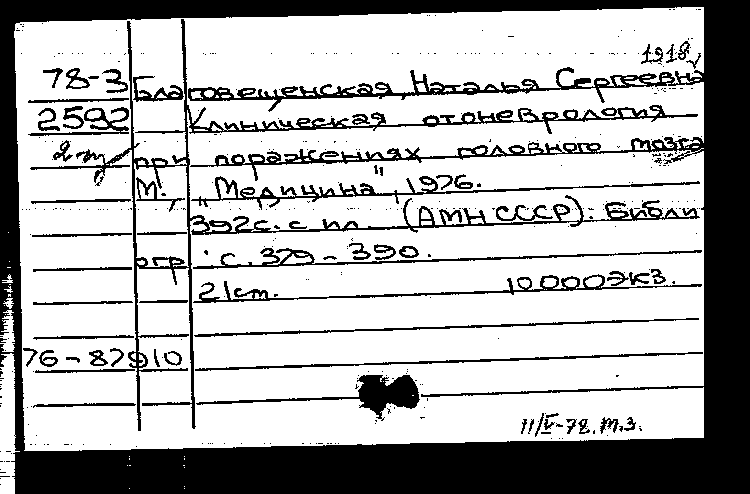 1918
78-3 Благовещенская, Наталья Сергеевна
2592 Клиническая отоневрология
при поражениях головного мозга
М., „Медицина", 1976.
392с. с ил. (АМН СССР). Библи-
огр.: с. 379-390.
21см. 10000экз.
76-87910
11/V-78. Т.З.